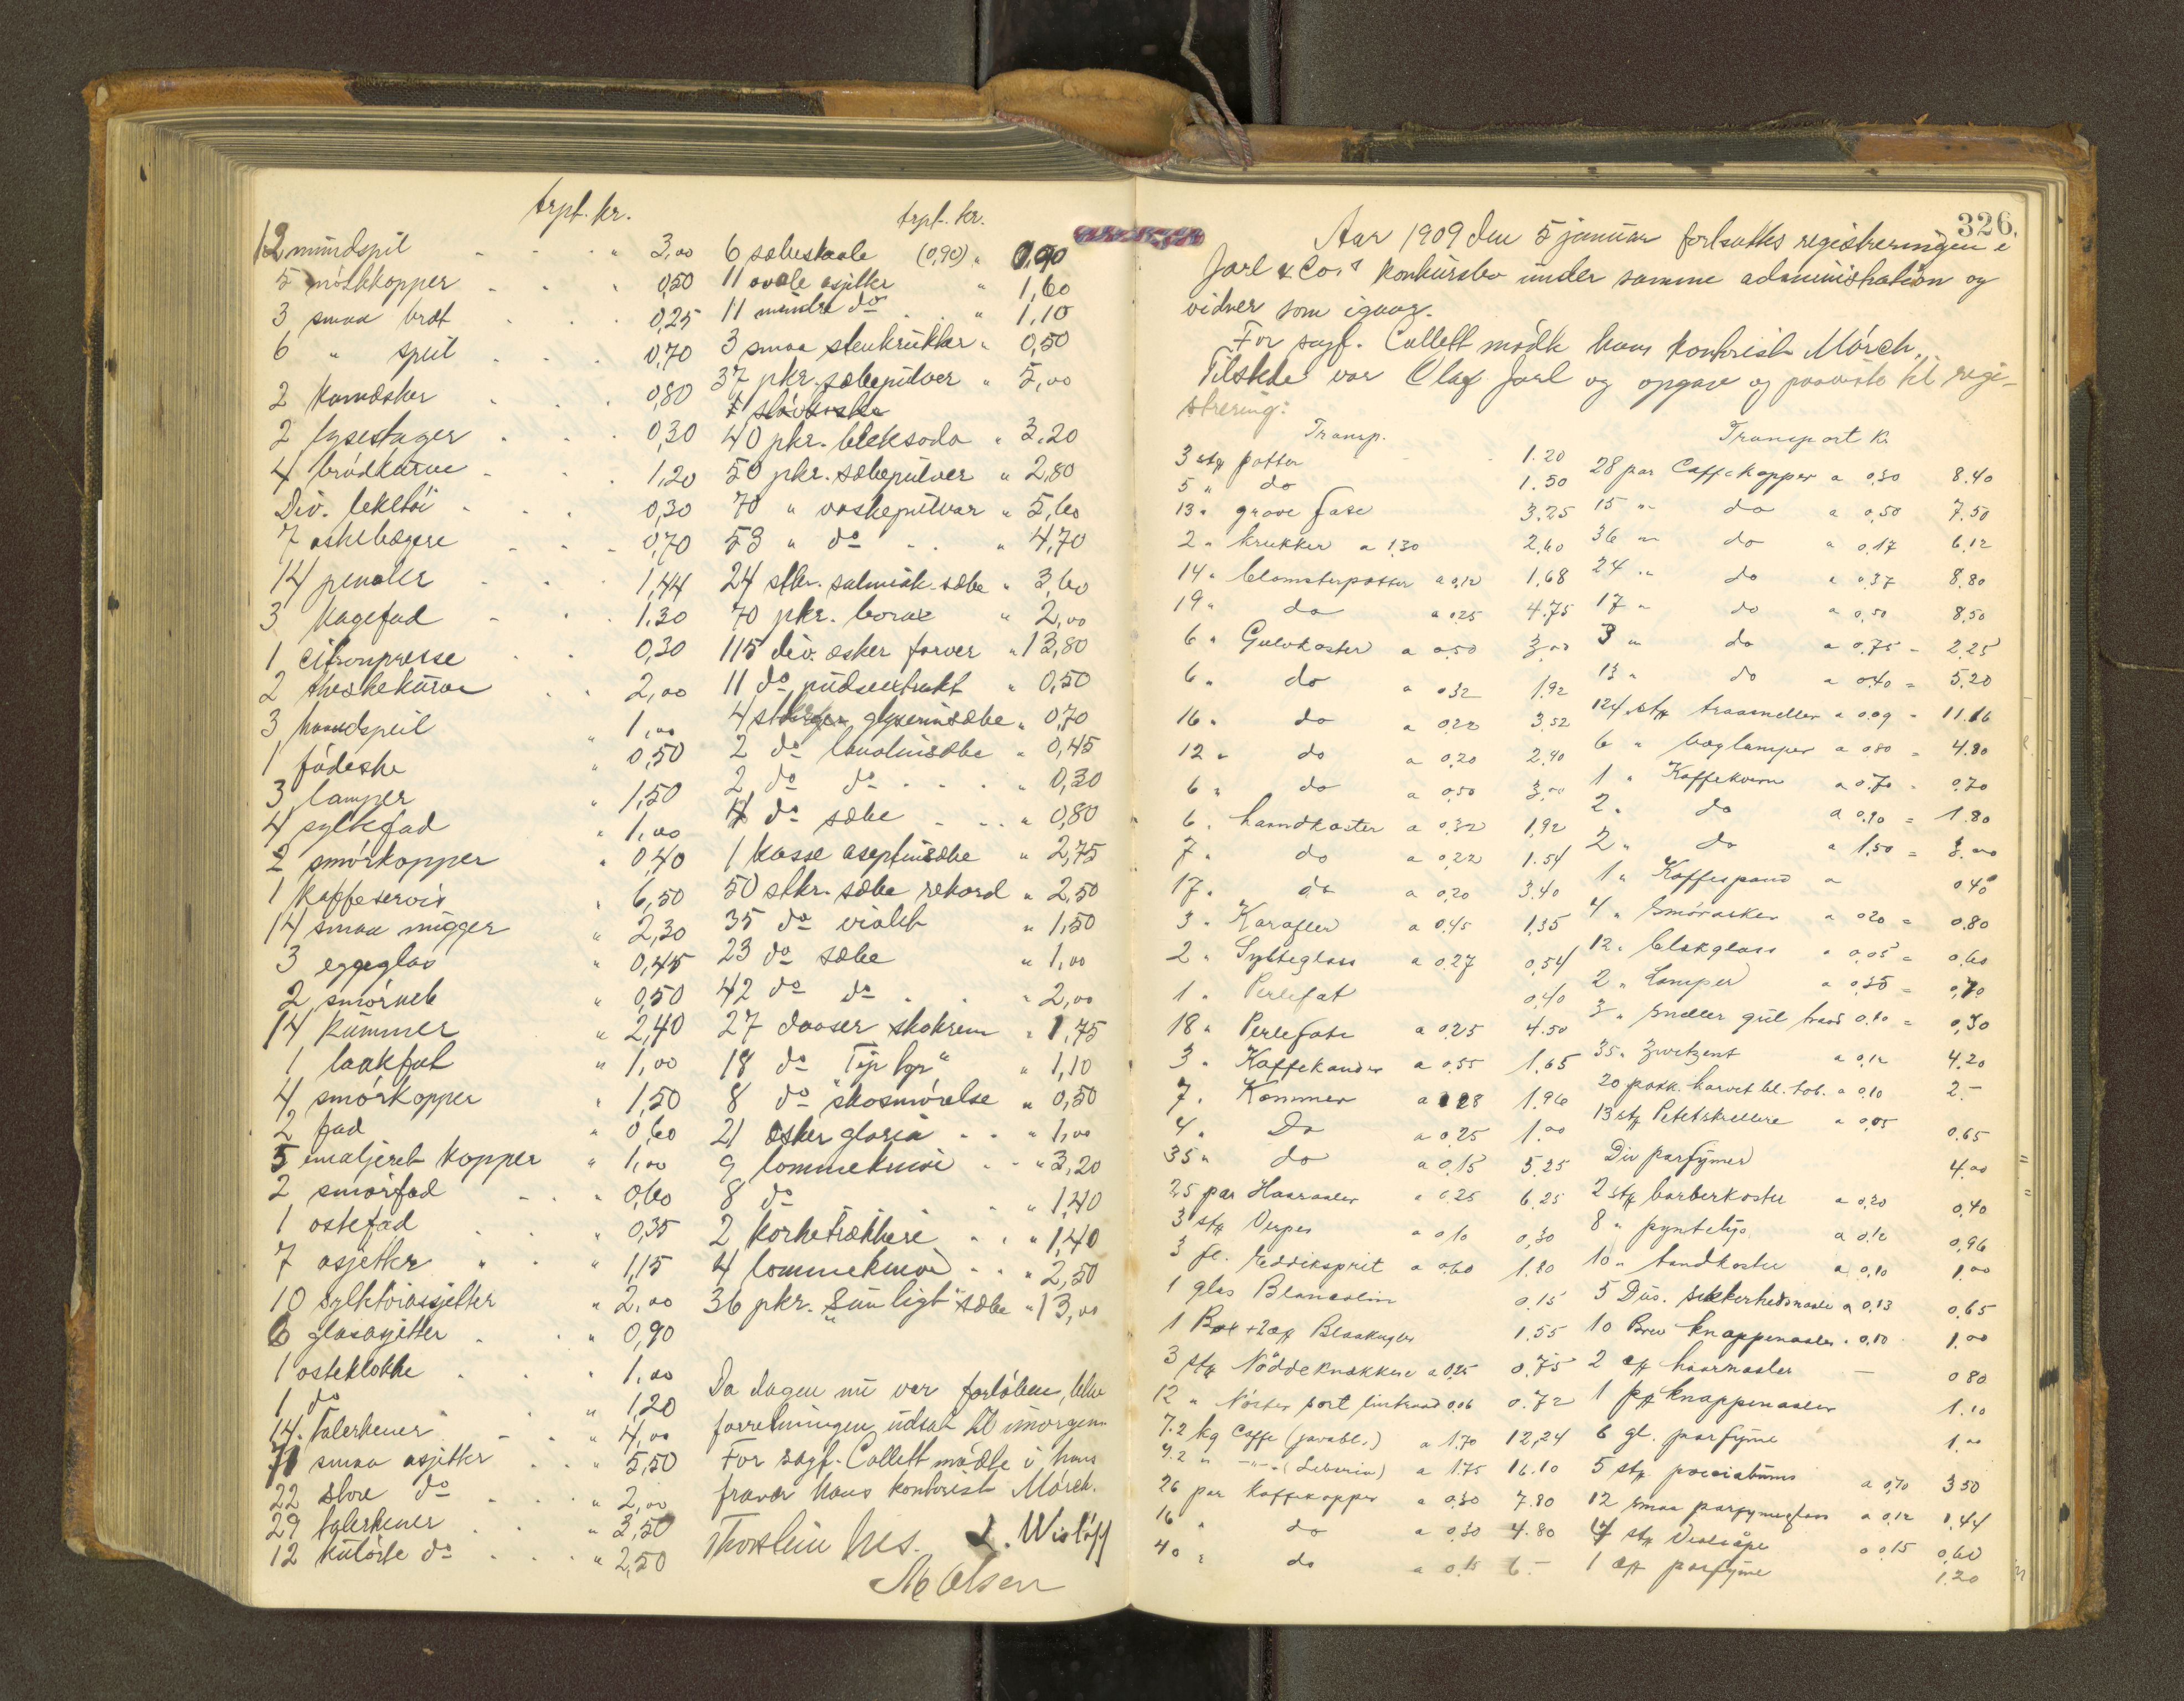 trpt. kr.
12 mundspil " 3,00
5 mökkopper " 0,50
3 smaa bret 0,25
6 " speil 0,70
2 kamæsker 0,80
2 lysestager 0,30
4 brödkurve 1,20
Div. leketöi 0,30
7 askebægere 0,70
14 penaler 1,44
3 kagefad 1,30
1 citronpresse 0,30
2 theskekurve 2,00
3 haandspeil " 1,00
1 födeske " 0,50
3 lamper " 1,50
4 syltefad " 1,00
2 smörkopper " 0,40
1 kaffeservis " 6,50
14 smaa mugger " 2,30
3 eggeglas " 0,45
2 " 0,50
14 kummer " 2,40
1 laakfat " 1,00
4 smörkopper " 1,50
2 fad " 0,60
5 emaljeret kopper " 1,00
2 smörfad " 0,60
1 ostefad " 0,35
7 asjetter " 1,15
10 syltetöiassjetter " 2,00
6 glasasjetter " 0,90
1 osteklokke " 1,00
1 do " 1,20
14 talerkener " 4,00
71 smaa asjetter " 5,50
22 store do " 2,00
29 talerkener " 3,50
12 kulörte do " 2,50
trpt. kr.
6 sæbeskaale (0,90) " 0,90
11 ovale asjetter " 1,60
11 mindre do " 1,10
3 smaa stenkrukker " 0,50
37 pkr. sæbepulver " 5,00
40 pkr. bleksoda " 3,20
50 pkr. sæbepulver " 2,80
70 " vaskepulver " 5,60
53 " do " 4,70
24 stkr. salmiak-sæbe " 3,60
70 pkr. borax " 2,00
115 div. æsker farver " 13,80
11 do pudseextrakt " 0,50
4 glyserinsæbe " 0,70
2 do lanolinsæbe " 0,45
2 do do " 0,30
do sæbe " 0,80
1 kasse aseptinsæbe " 2,75
50 stkr. sæbe rekord " 2,50
35 do violet " 1,50
23 do sæbe " 1,00
42 do do " 2,00
27 daaser skokrem " 1,75
18 do "Tip top" " 1,10
8 do skosmörelse " 0,50
21 æsker gloria " 1,00
9 lommeknive " 3,20
8 do " 1,40
2 korketrækkere " 1,40
4 lommeknive " 2,50
36 pkr. "Sunligt" sæbe " 13,00
Da dagen nu var forlöben, blev
forretningen udsat til imorgen.
For sagf. Collett mödte i hans
fravær hans kontorist Mörch.
Thorstein L. Wislöff
M Olsen
326.
Aar 1909 den 5 januar fortsattes registreringen i
Jarl & Co.s konkursbo under samme administration og
vidner som igaar.
For sagf. Collett mödte hans kontorist Mörch.
Tilstede var Olaf Jarl og opgav og paaviste til regi-
strering:
Transp.
3 stk potter 1.20
5 " do 1.50
13 " grove fade 3.25
2 " krukker a 1.30 2.60
14 " blomsterpotter a 0.12 1.68
19 " do a 0.25 4.75
6 " Gulvkoster a 0.50 3.00
6 " do a 0.32 1.92
16 " do a 0.22 3.52
12 " do a 0.20 2.40
6 " do a 0.50 3.00
6 " haandkoster a 0.32 1.92
7 " do a 0.22 1.54
17 " do a 0.20 3.40
3 " Karafler a 0.45 1.35
2 " Sylteglass a 0.27 0.54
1 " Perlefat 0.40
18 " Perlefate a 0.25 4.50
3 " Kaffekander a 0.55 1.65
7 " Kommer a 0.28 1.96
4 " Do a 0.25 1.00
35 " do a 0.15 5.25
25 par Haarnaaler a 0.25 6.25
3 stk a 0.10 0.30
3 fl. Eddiksprit a 0.60 1.80
1 glas 0.15
1 Box + 2 æsk Blaakugler 1.55
3 stk Nöddeknækkere a 0.25 0.75
12 " Nöster sort lintraad 0.06 0.72
7.2 kg Caffe (javabl.) a 1.70 12,24
9.2 " -"- (Liberia) a 1.75 16.10
26 par Kaffekopper a 0.30 7.80
16 " do a 0.30 4.80
40 " do a 0.15 6.-
Transport kr
28 par Caffekopper a 0.30 8.40
15 " do a 0.50 7.50
36 " do a 0.17 6.12
24 " do a 0.37 8.80
17 " do a 0.50 8.50
3 " do a 0.75 = 2.25
13 " do a 0.40 = 5.20
124 stk traadsneller a 0.09 = 11.16
6 " væglamper a 0.80 = 4.80
1 " Kaffekvern a 0.70 = 0.70
2 " do a 0.90 = 1.80
2 " do a 1.50 = 3.00
1 " Kaffespand a 0.40
4 " Smöræsker a 0.20 = 0.80
12 " blækglass a 0.05 = 0.60
2 " Lamper a 0.35 = 0.70
3 " Sneller gul traad 0.10 = 0.30
35 " a 0.12 4.20
20 a 0.10 2.-
13 stk a 0.05 0.65
Div parfymer 4.00
2 stk barberkoste a 0.20 0.40
8 " pyntelys a 0.12 0.96
10 " tandkoster a 0.10 1.00
5 Dus. sikkerhedsnaale a 0.13 0.65
10 Brev knappenaaler a 0.10 1.00
2 æsk haarnaaler 0.80
1 knappenaaler 1.10
6 gl. parfyme 1.00
5 stk a 0.70 3.50
12 smaa parfymeglass a 0.12 1.44
stk a 0.15 0.60
1 æsk parfyme 1.20